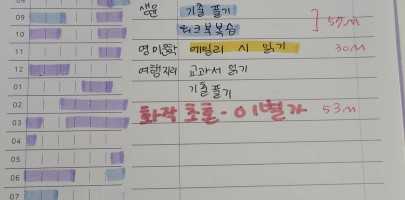 09
생윤 기출 풀기
10
워크북복습 57M
11
영어문학 에밀리 시 읽기 30M
12
여행지리 교과서 읽기
01
기출 풀기
02
03
화작 초혼·이별가 53M
04
05
06
07